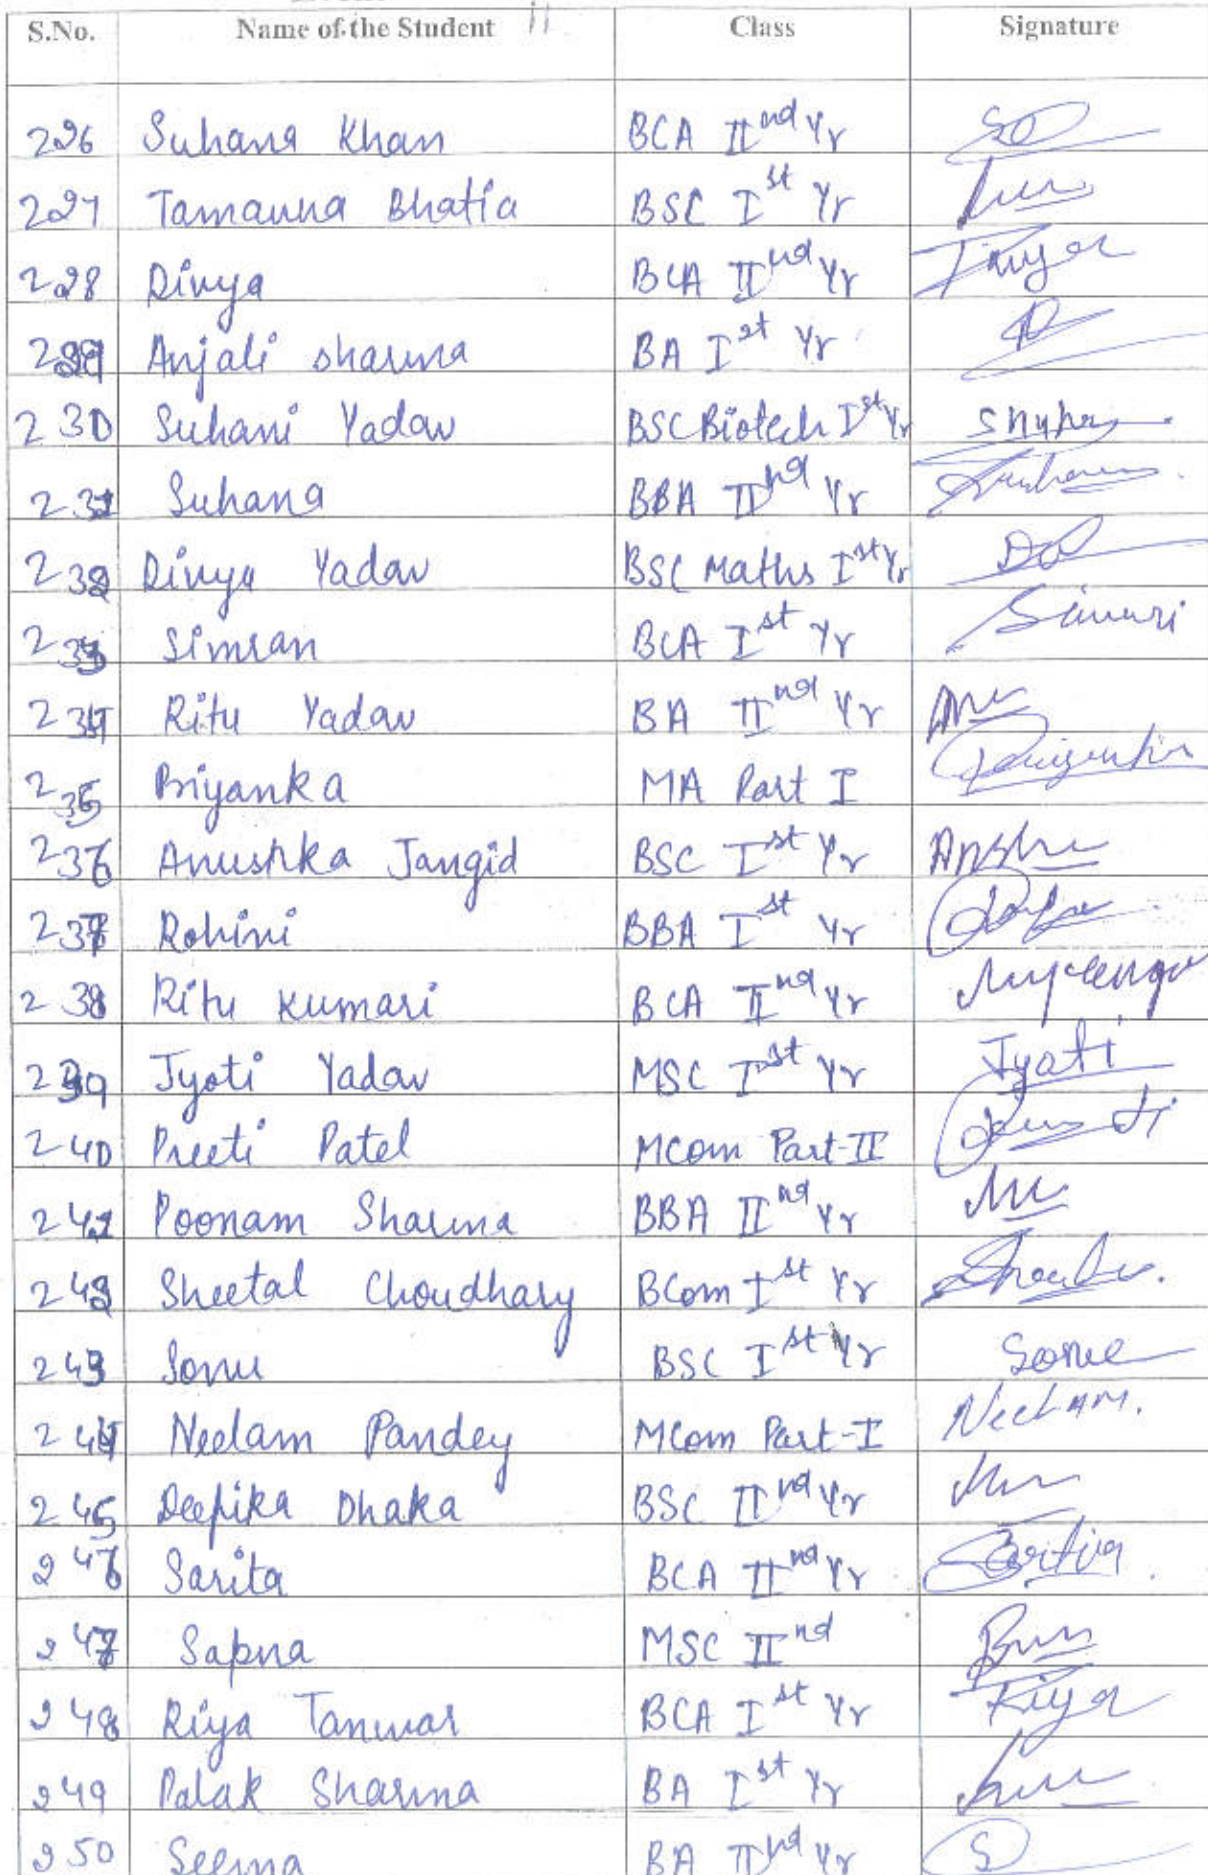 S.No. Name of the Student Class Signature
226 Suhana Khan BCA IInd Yr
227 Tamanna Bhatia BSC Ist Yr
228 Divya BCA IInd Yr
229 Anjali Sharma BA Ist Yr
230 Suhani Yadav BSC Biotech Ist Yr
231 Suhana BBA IInd Yr
232 Divya Yadav BSC Maths Ist Yr
233 Simran BCA Ist Yr
234 Ritu Yadav BA IInd Yr
235 Priyanka MA Part I
236 Anushka Jangid BSC Ist Yr Anshu
237 Rohini BBA Ist Yr
238 Ritu Kumari BCA IInd Yr
239 Jyoti Yadav MSC Ist Yr Jyoti
240 Preeti Patel MCom Part-II
241 Poonam Sharma BBA IInd Yr
242 Sheetal Choudhary BCom Ist Yr
243 Sonu BSC Ist Yr Sonu
244 Neelam Pandey MCom Part-I Neelam.
245 Deepika Dhaka BSC IInd Yr
246 Sarita BCA IInd Yr
247 Sapna MSC IInd
248 Riya Tanwar BCA Ist Yr Riya
249 Palak Sharma BA Ist Yr
250 Seema BA IInd Yr S